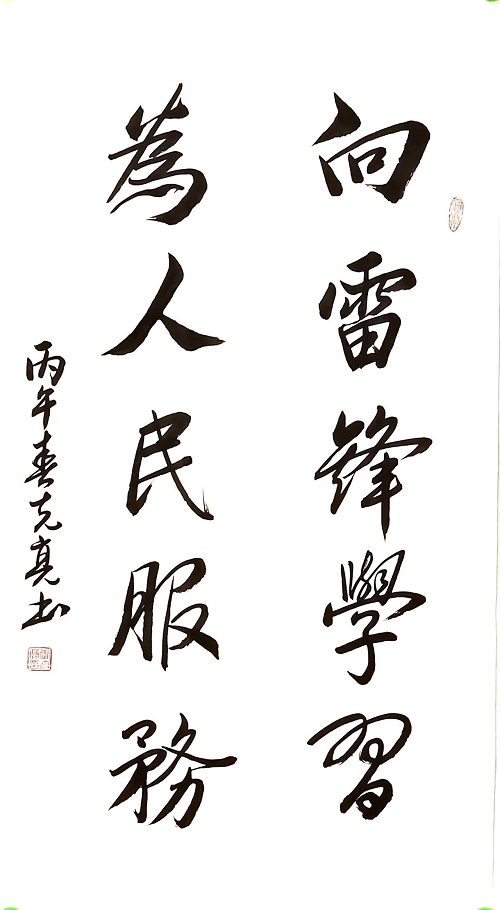 向雷鋒學習
為人民服務
丙午春克亮书